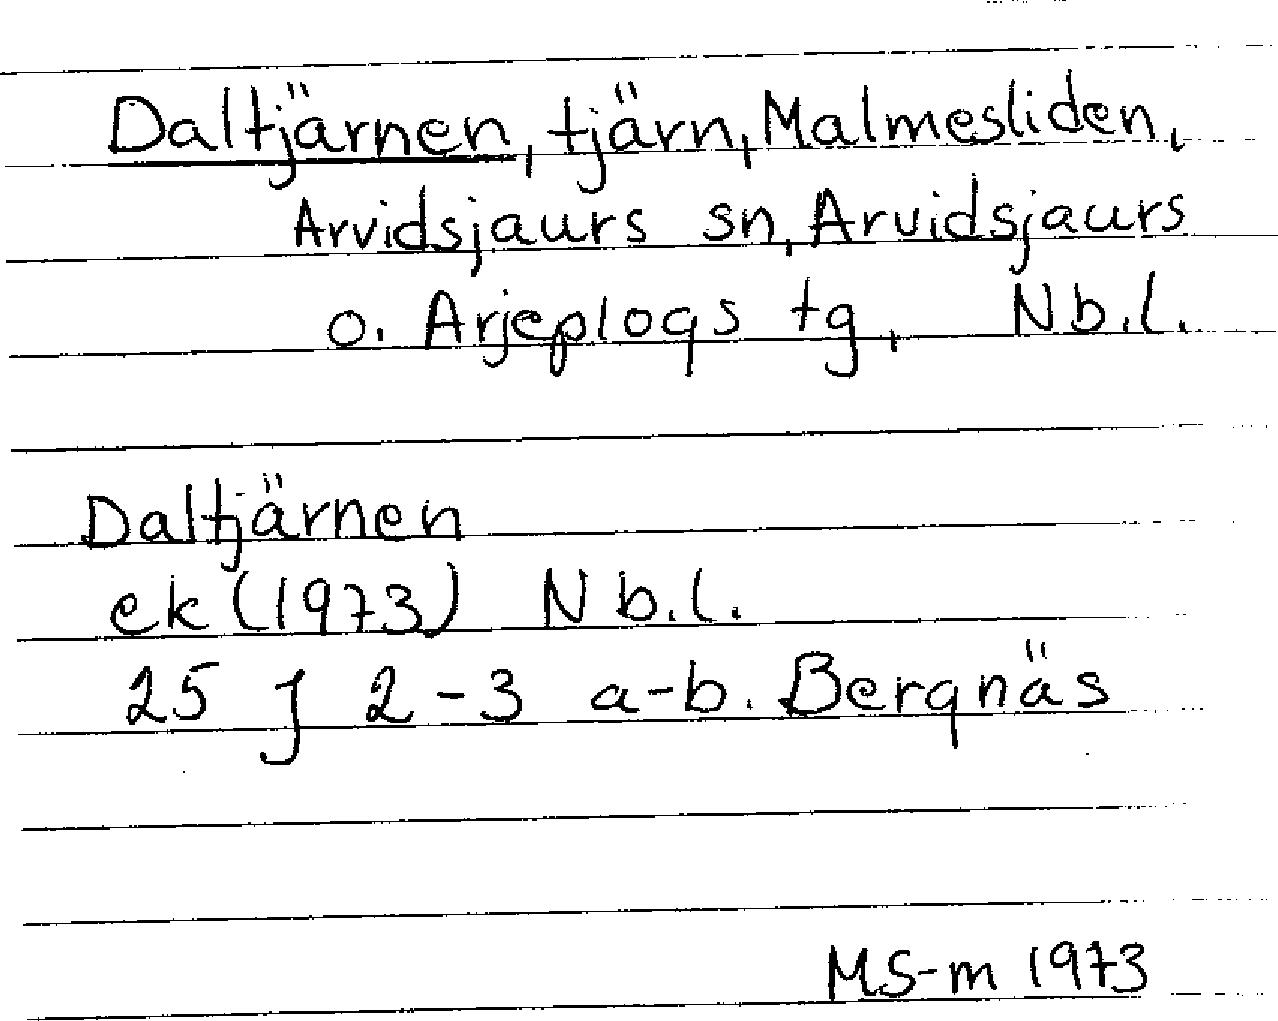 Daltjärnen, tjärn, Malmesliden,
Arvidsjaurs sn, Arvidsjaurs
o. Arjeplogs tg, Nb.l.
Daltjärnen
ek (1973) Nb.l.
25 J 2-3 a-b. Bergnäs
MS-m 1973